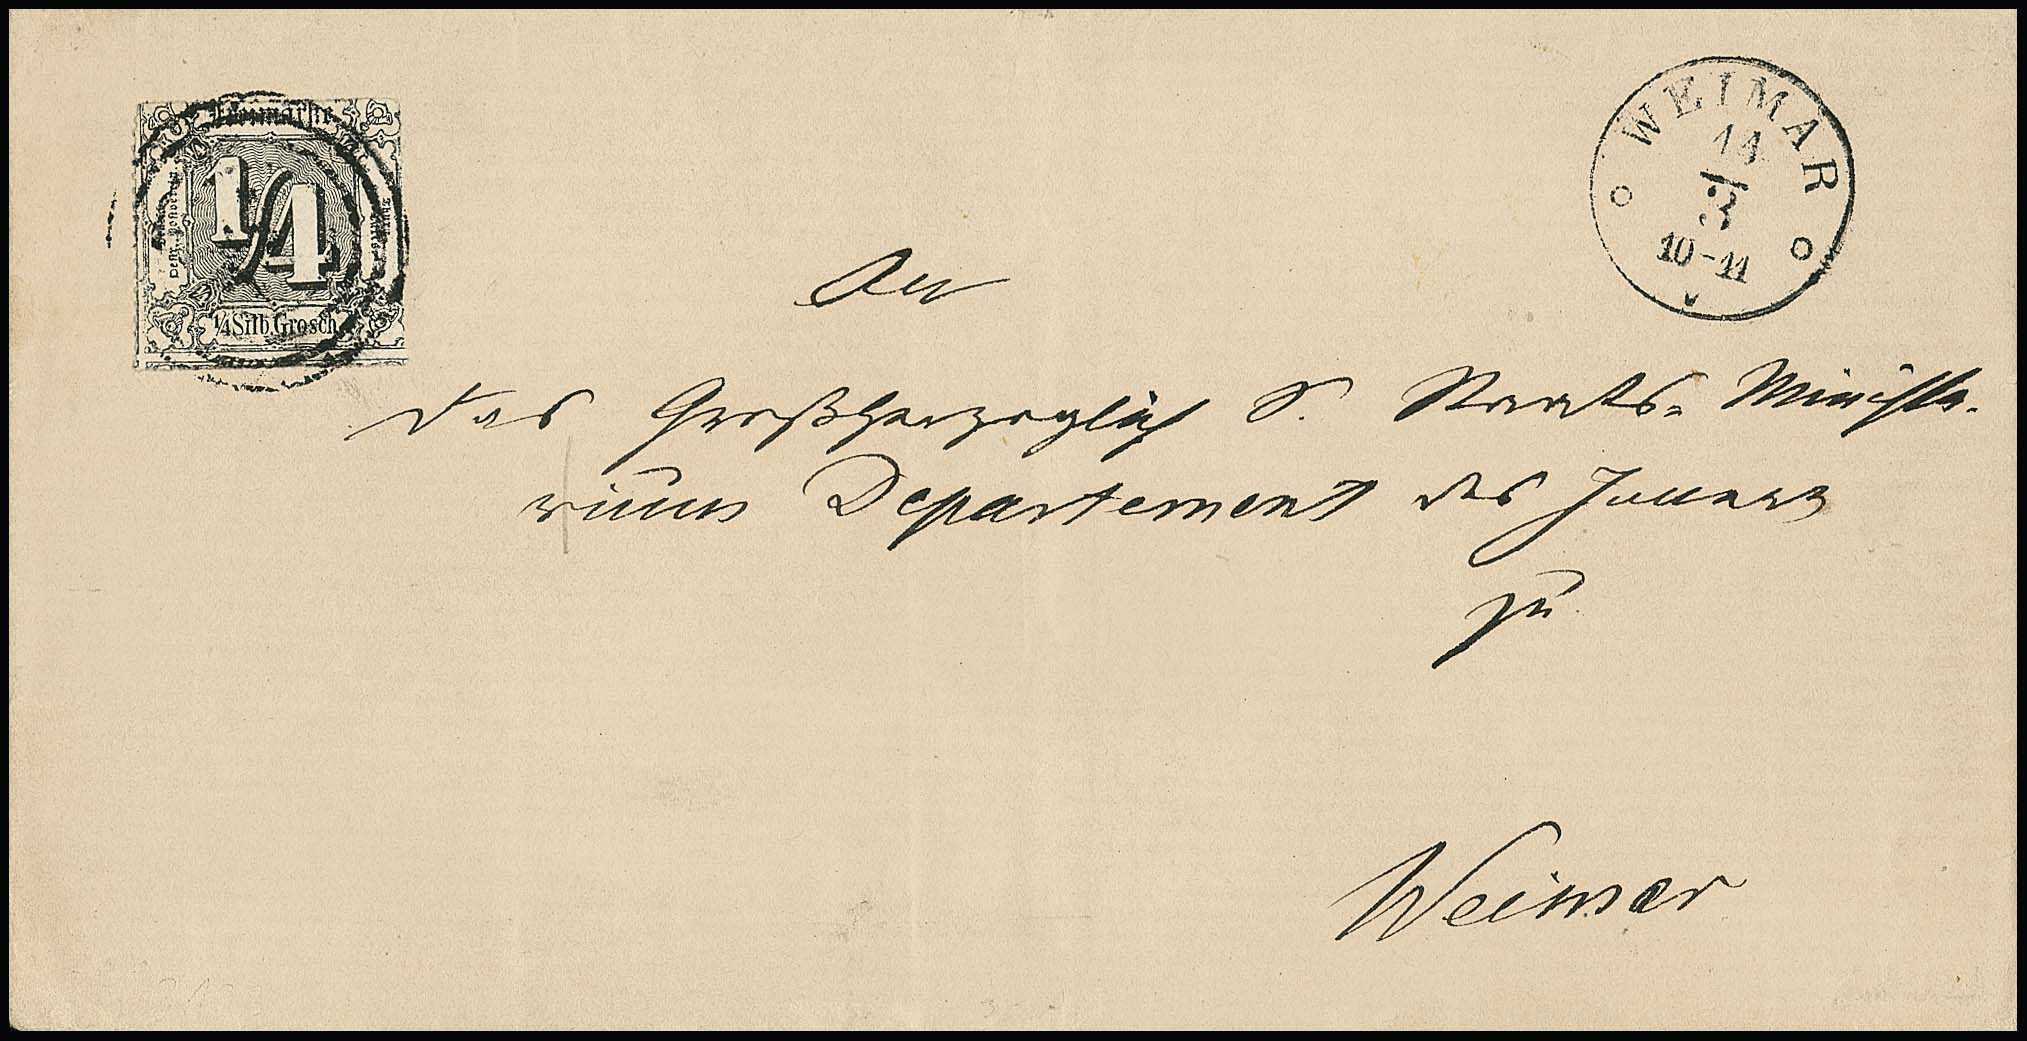 Freimarke
Deutr. Postverein
1/4
1/4 Silb. Grosch.
WEIMAR
14
3
10-11
An
das Großherzoglich S. Staats=Ministe-
rium Departement des Innern
zu
Weimar